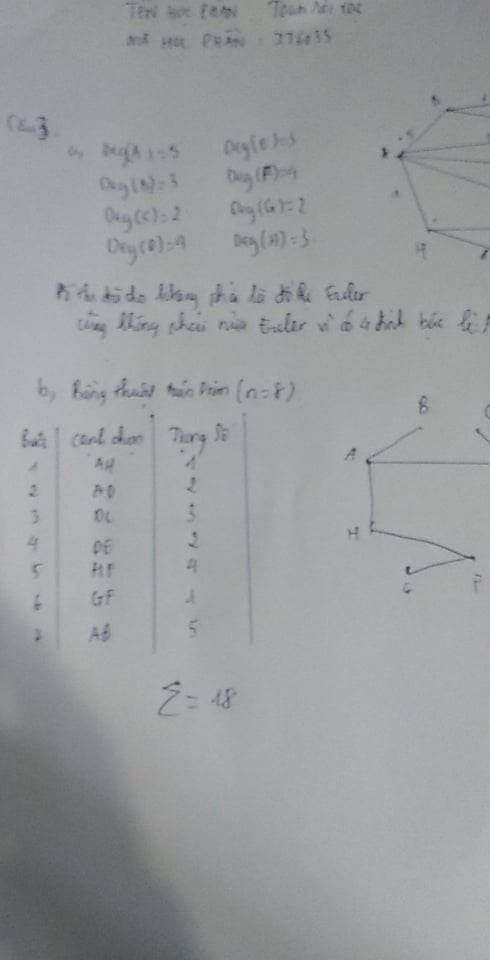 TÊN HỌC PHẦN Toán rời rạc
MÃ HỌC PHẦN:
Câu 3
a, Deg(A)=5 Deg(E)=3
Deg(B)=3 Deg(F)=4
Deg(C)=2 Deg(G)=2
Deg(D)=4 Deg(H)=3
đồ thị Euler
cũng không phải nửa Euler vì có 4 đỉnh bậc lẻ
b, Bảng thuật toán Prim (n=8)
Bước cạnh chọn Trọng số
1 AH 1
2 AD 2
3 DC 3
4 DE 2
5 HF 4
6 GF 1
7 AB 5
Σ = 18
B
5
A
H
B
A
H
G F